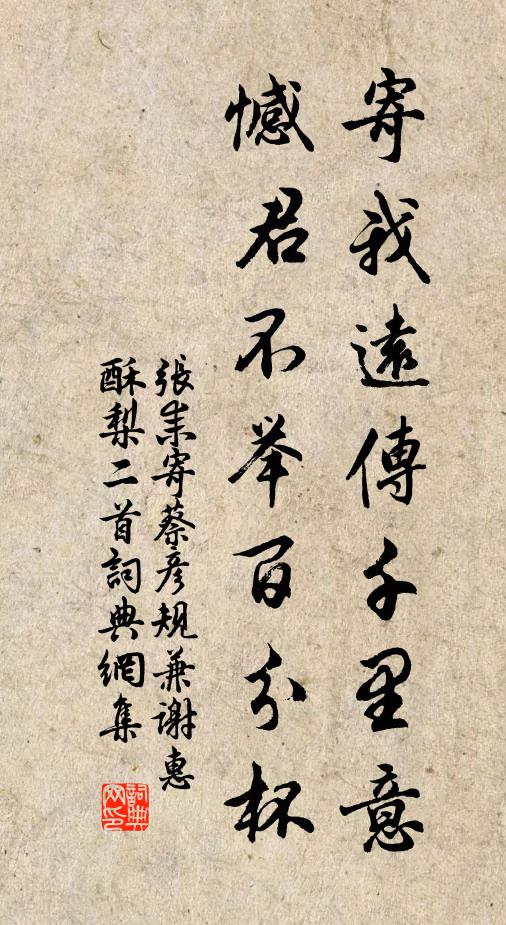 寄我遠傳千里意
憾君不举百分杯
張耒寄蔡彦規兼謝惠
酥梨二首詞典網集
詞典
网印